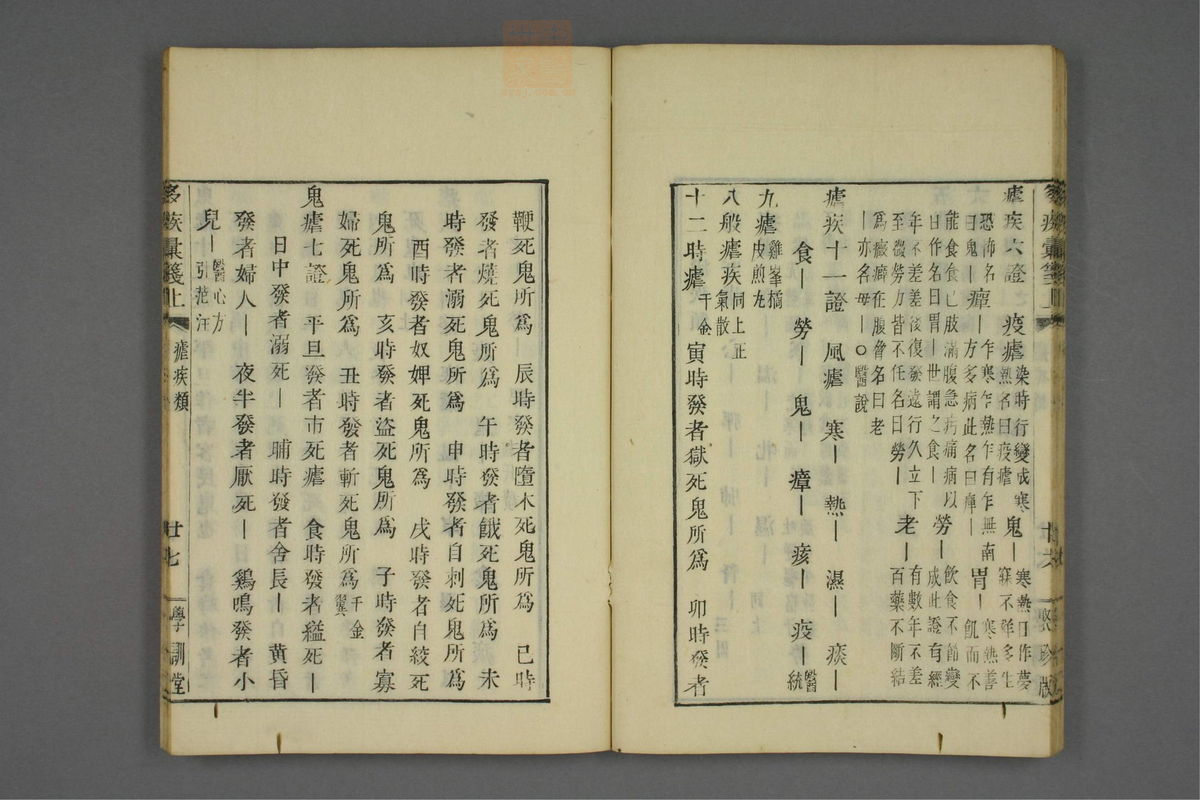 瘧疾六證　疫瘧染時行變成寒熱名曰疫瘧鬼｜寒熱日作夢寐不祥多生
恐怖名曰鬼｜瘴｜乍寒乍熱乍有乍無南方多病此名曰瘴｜胃｜飢而不
能食食已肢滿腹急病痛病以日作名曰胃｜世謂之食｜勞｜飲食不節變成此證有經
年不差差後復發遠行久立下至微勞力皆不任名曰勞｜老｜有數年不差百藥不斷結
為癥癖在腹脅名曰老｜亦名母｜〇醫說
瘧疾十一證　風瘧　寒｜　熱｜　濕｜　痰｜
食｜　勞｜　鬼｜　瘴｜　痎｜　疫｜醫統
九瘧雞峯橘皮煎丸
八般瘧疾同上正氣散
十二時瘧千金　寅時發者獄死鬼所爲　卯時發者
鞭死鬼所爲｜辰時發者墮木死鬼所爲　巳時
發者燒死鬼所爲　午時發者餓死鬼所爲　未
時發者溺死鬼所爲　申時發者自刺死鬼所爲
酉時發者奴婢死鬼所爲　戌時發者自絞死
鬼所爲　亥時發者盜死鬼所爲　子時發者寡
婦死鬼所爲　丑時發者斬死鬼所爲千金翼
鬼瘧七證　平旦發者市死瘧　食時發者縊死｜
日中發者溺死｜　晡時發者舍長｜　黄昏
發者婦人｜　夜半發者厭死｜　鷄鳴發者小
兒｜醫心方引范汪
多疾彙箋上　瘧疾類　廿七　學訓堂